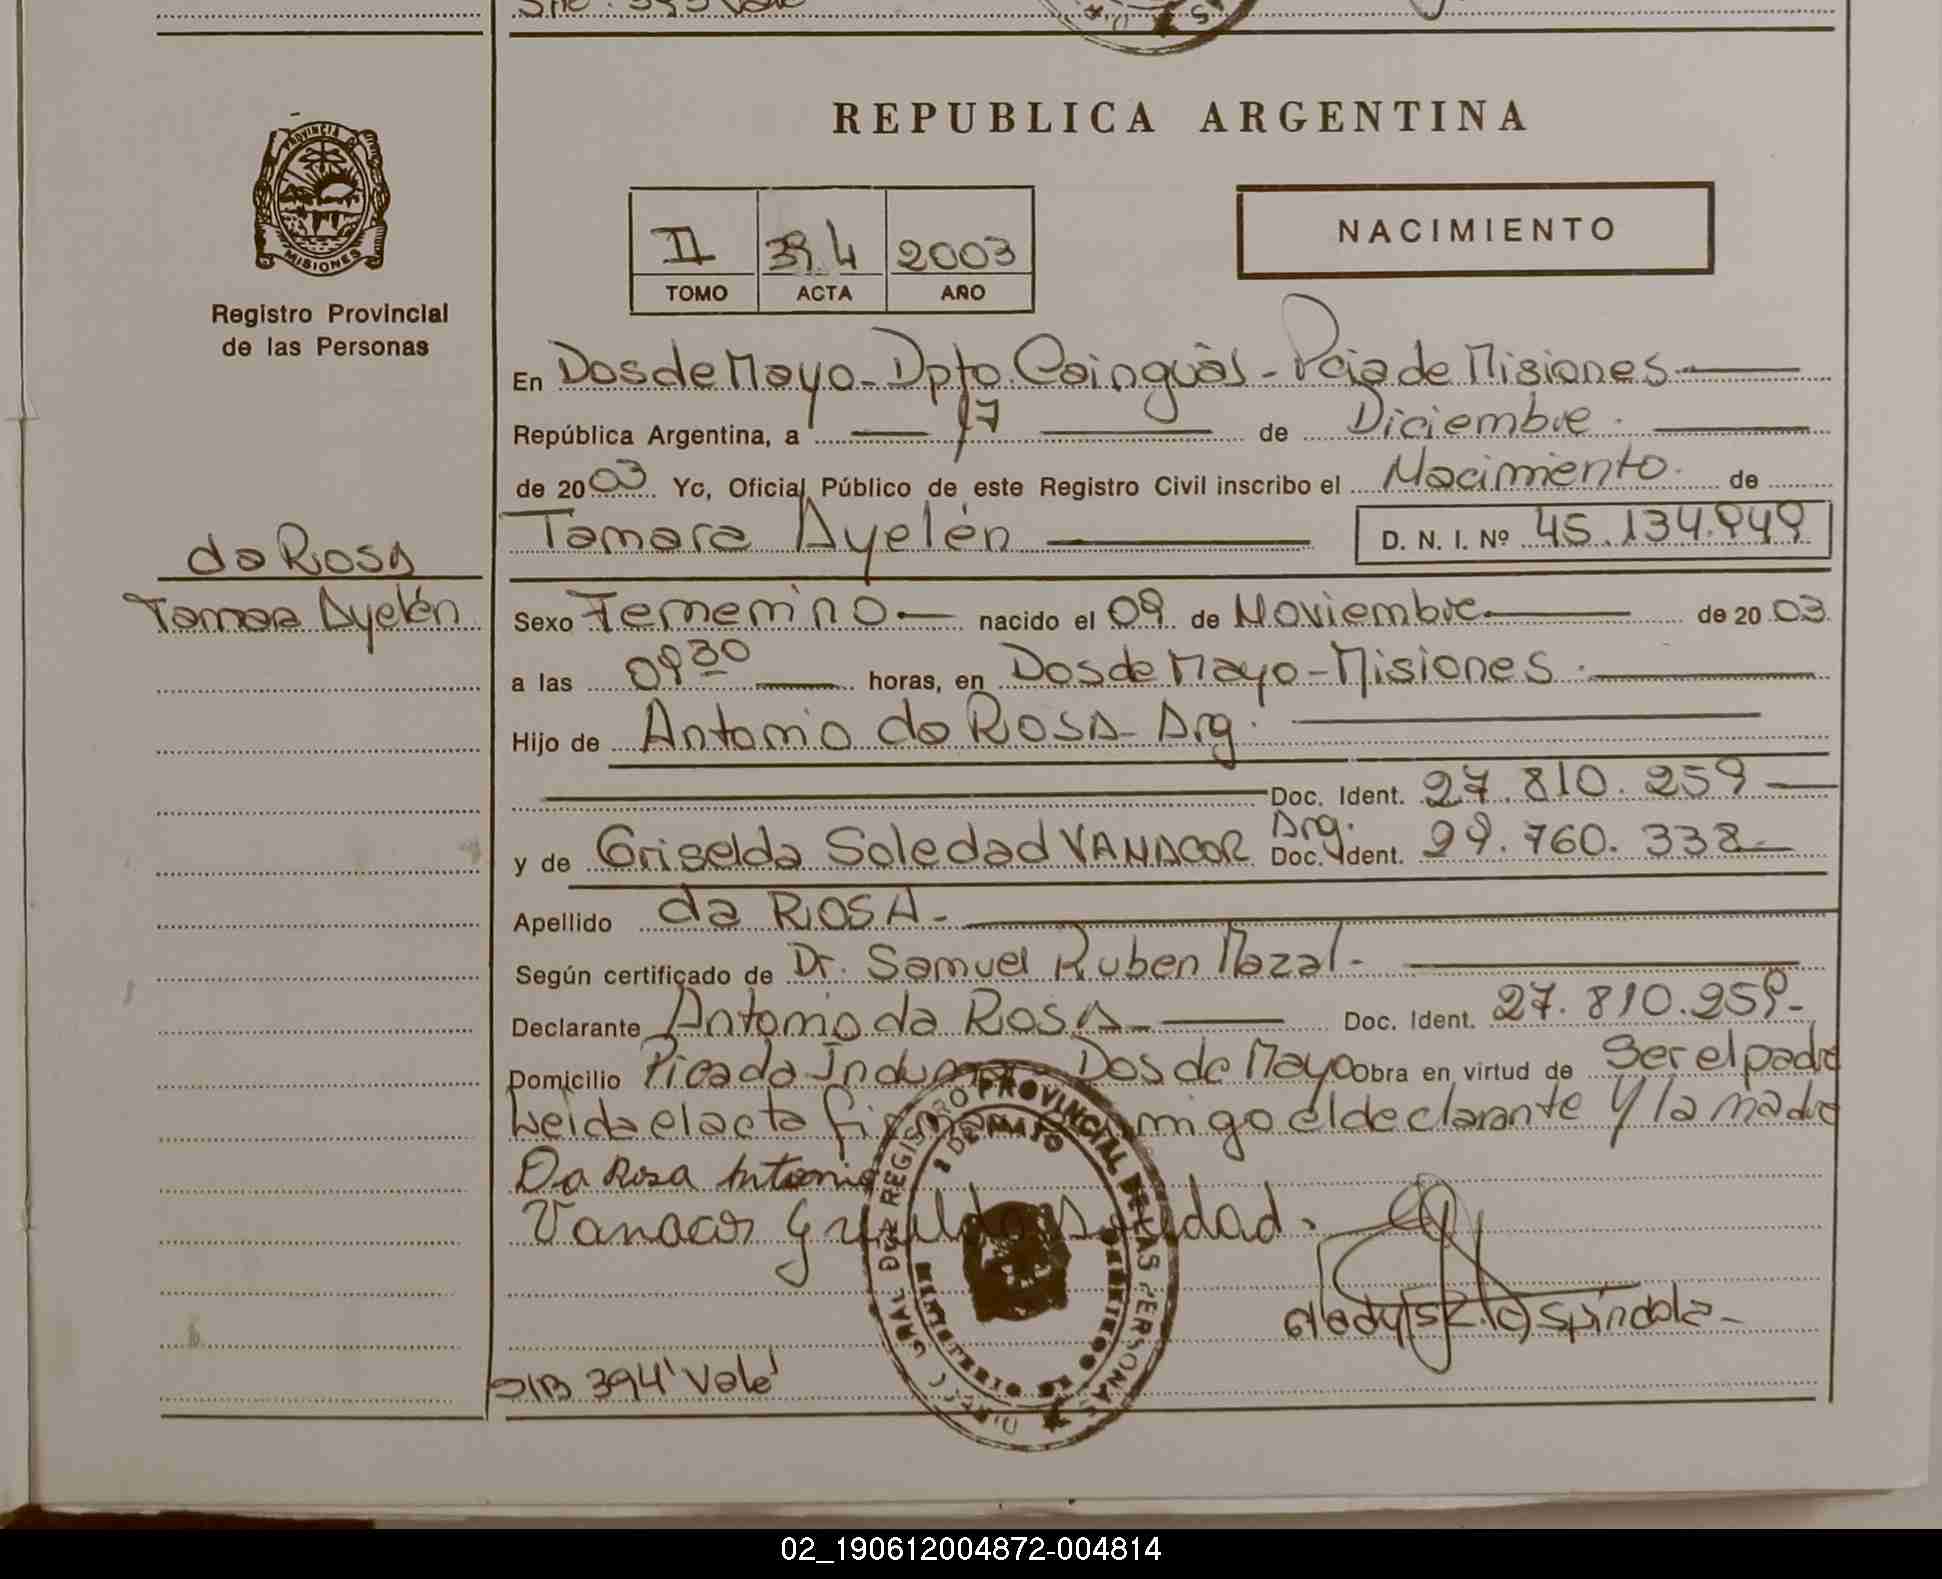 REPUBLICA ARGENTINA
PROVINCIA DE
MISIONES
Registro Provincial
de las Personas
II 394 2003
TOMO ACTA AÑO
NACIMIENTO
En Dos de Mayo - Dpto. Cainguás - Pcia de Misiones
República Argentina, a 17 de Diciembre.
de 2003 Yo, Oficial Público de este Registro Civil inscribo el Nacimiento de
Tamara Ayelén D. N. I. Nº 45.134.949
da ROSA
Tamara Ayelén
Sexo Femenino nacido el 09 de Noviembre de 2003
a las 09 30 horas, en Dos de Mayo - Misiones.
Hijo de Antonio da ROSA - Arg.
Doc. Ident. 27.810.259
y de Griselda Soledad VANACOR Arg. Doc. Ident. 29.760.338
Apellido da ROSA -
Según certificado de Dr. Samuel Ruben Mazal -
Declarante Antonio da ROSA Doc. Ident. 27.810.259 -
Domicilio Picada Dos de Mayo Obra en virtud de Ser el padre
Leida el acta migo el declarante y la madre
Da Rosa Antonio
Vanacor
REGISTRO PROVINCIAL DE LAS PERSONAS
2 DE MAYO
S/B 394 "Vale"
02_190612004872-004814